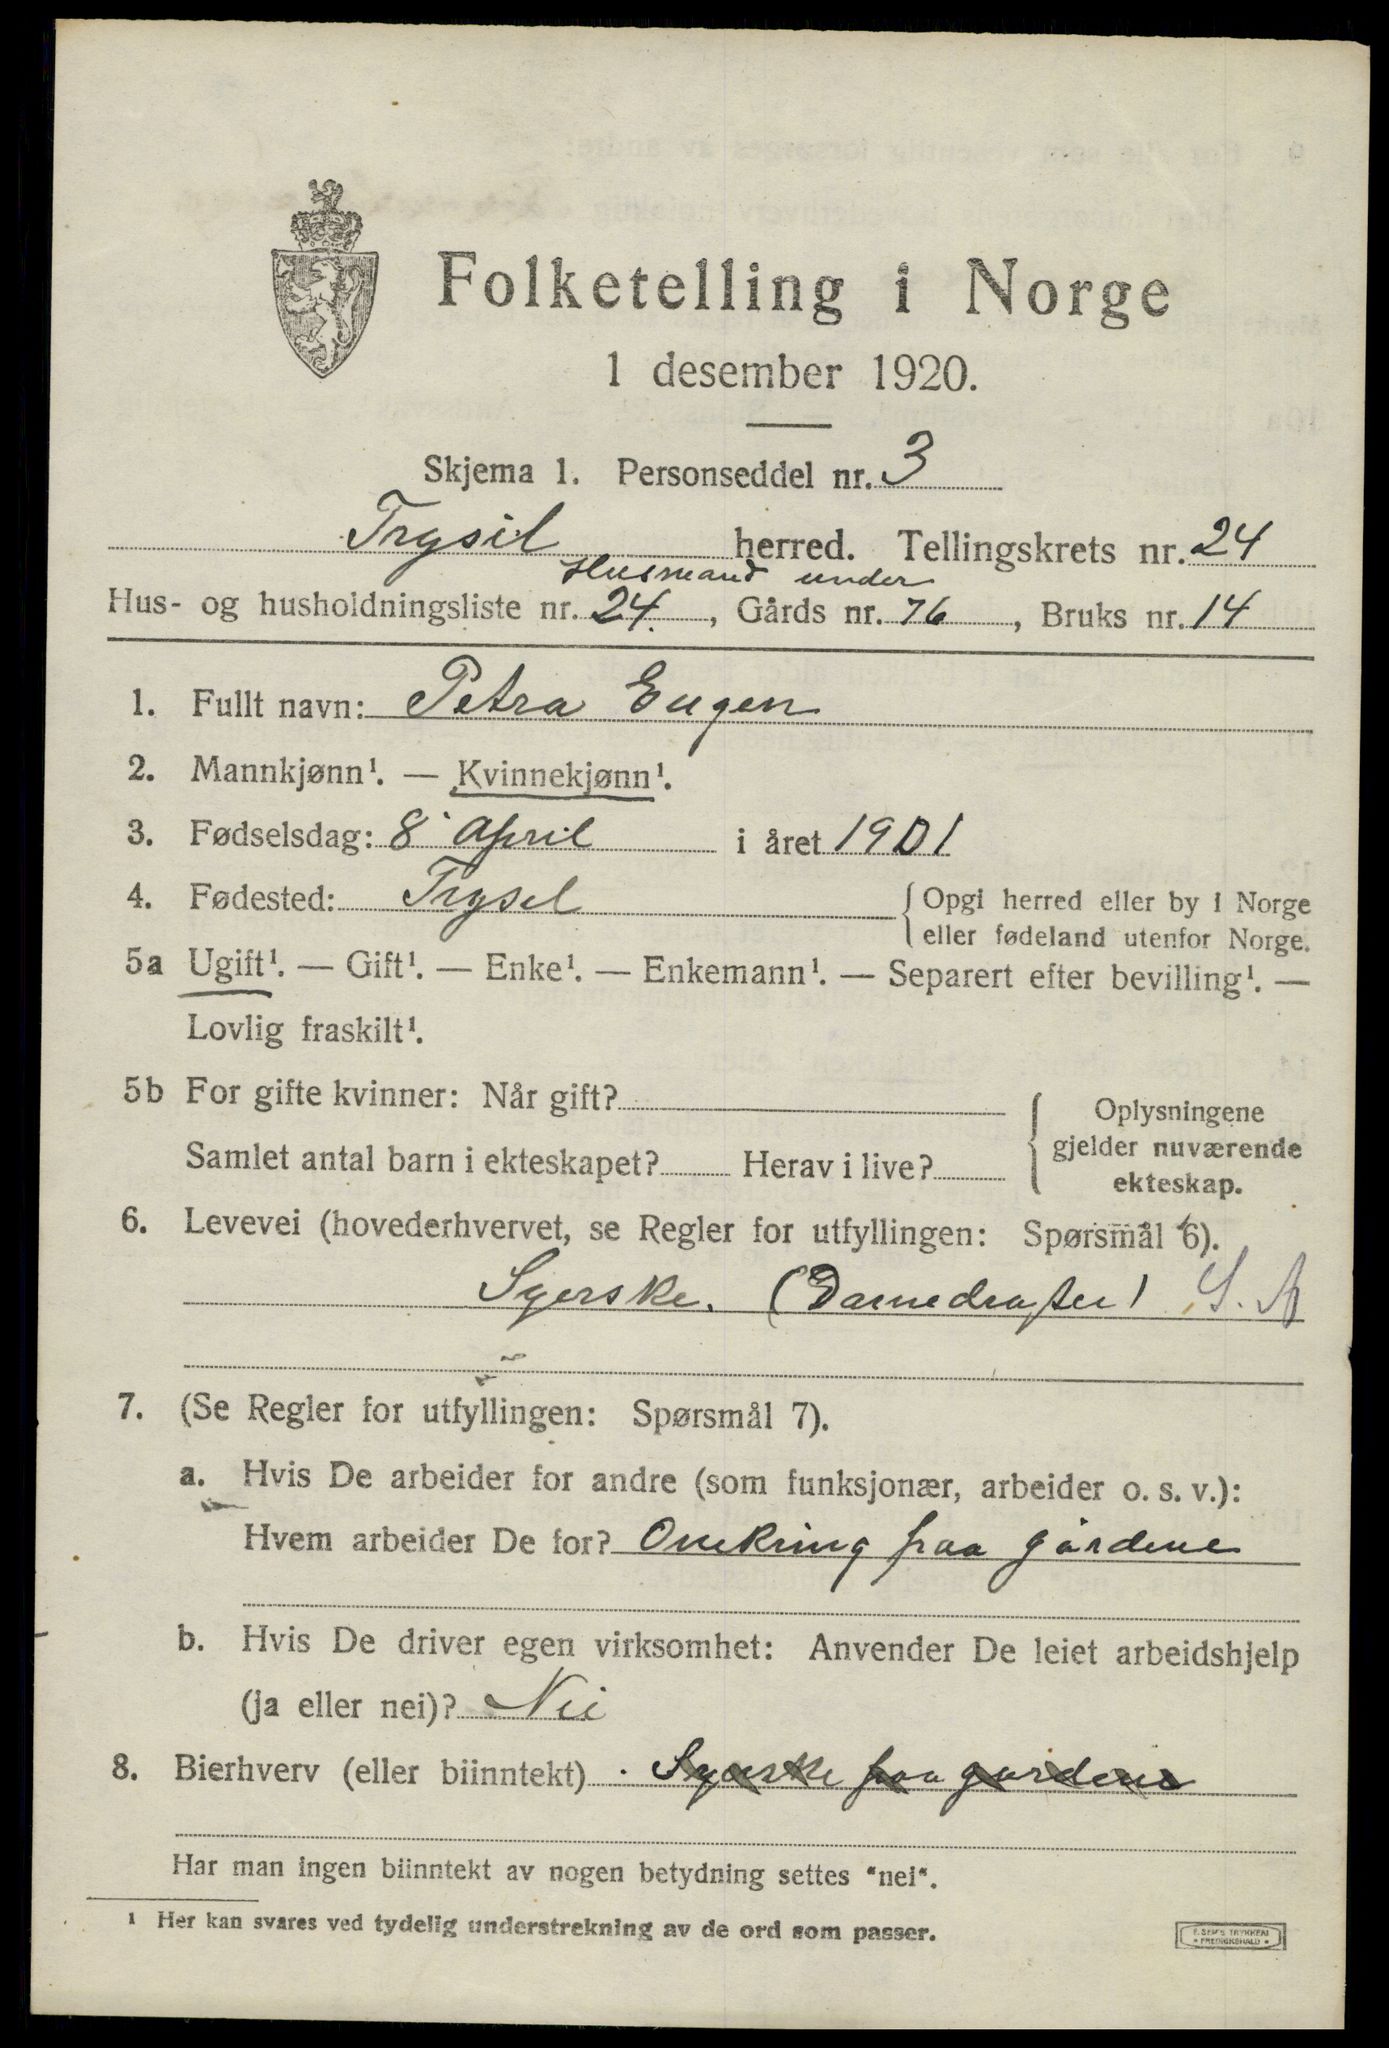 Folketelling i Norge
1 desember 1920.
Skjema 1. Personseddel nr. 3
Trysil herred. Tellingskrets nr. 24
Husmand under
Hus- og husholdningsliste nr. 24., Gårds nr. 76, Bruks nr. 14
1. Fullt navn: Petra Eugen
2. Mannkjønn¹. — Kvinnekjønn¹.
3. Fødselsdag: 8 April i året 1901
4. Fødested: Trysel { Opgi herred eller by i Norge
eller fødeland utenfor Norge.
5a Ugift¹. — Gift¹. — Enke¹. — Enkemann¹. — Separert efter bevilling¹. —
Lovlig fraskilt¹.
5b For gifte kvinner: Når gift?
Samlet antal barn i ekteskapet? Herav i live?
{ Oplysningene
gjelder nuværende
ekteskap.
6. Levevei (hovederhvervet, se Regler for utfyllingen: Spørsmål 6).
Syerske. (Damedragter) S. A
7. (Se Regler for utfyllingen: Spørsmål 7).
a. Hvis De arbeider for andre (som funksjonær, arbeider o. s. v.):
Hvem arbeider De for? Omkring paa gårdene
b. Hvis De driver egen virksomhet: Anvender De leiet arbeidshjelp
(ja eller nei)? Nei
8. Bierhverv (eller biinntekt) Syerske paa gardene
Har man ingen biinntekt av nogen betydning settes "nei".
¹ Her kan svares ved tydelig understrekning av de ord som passer.